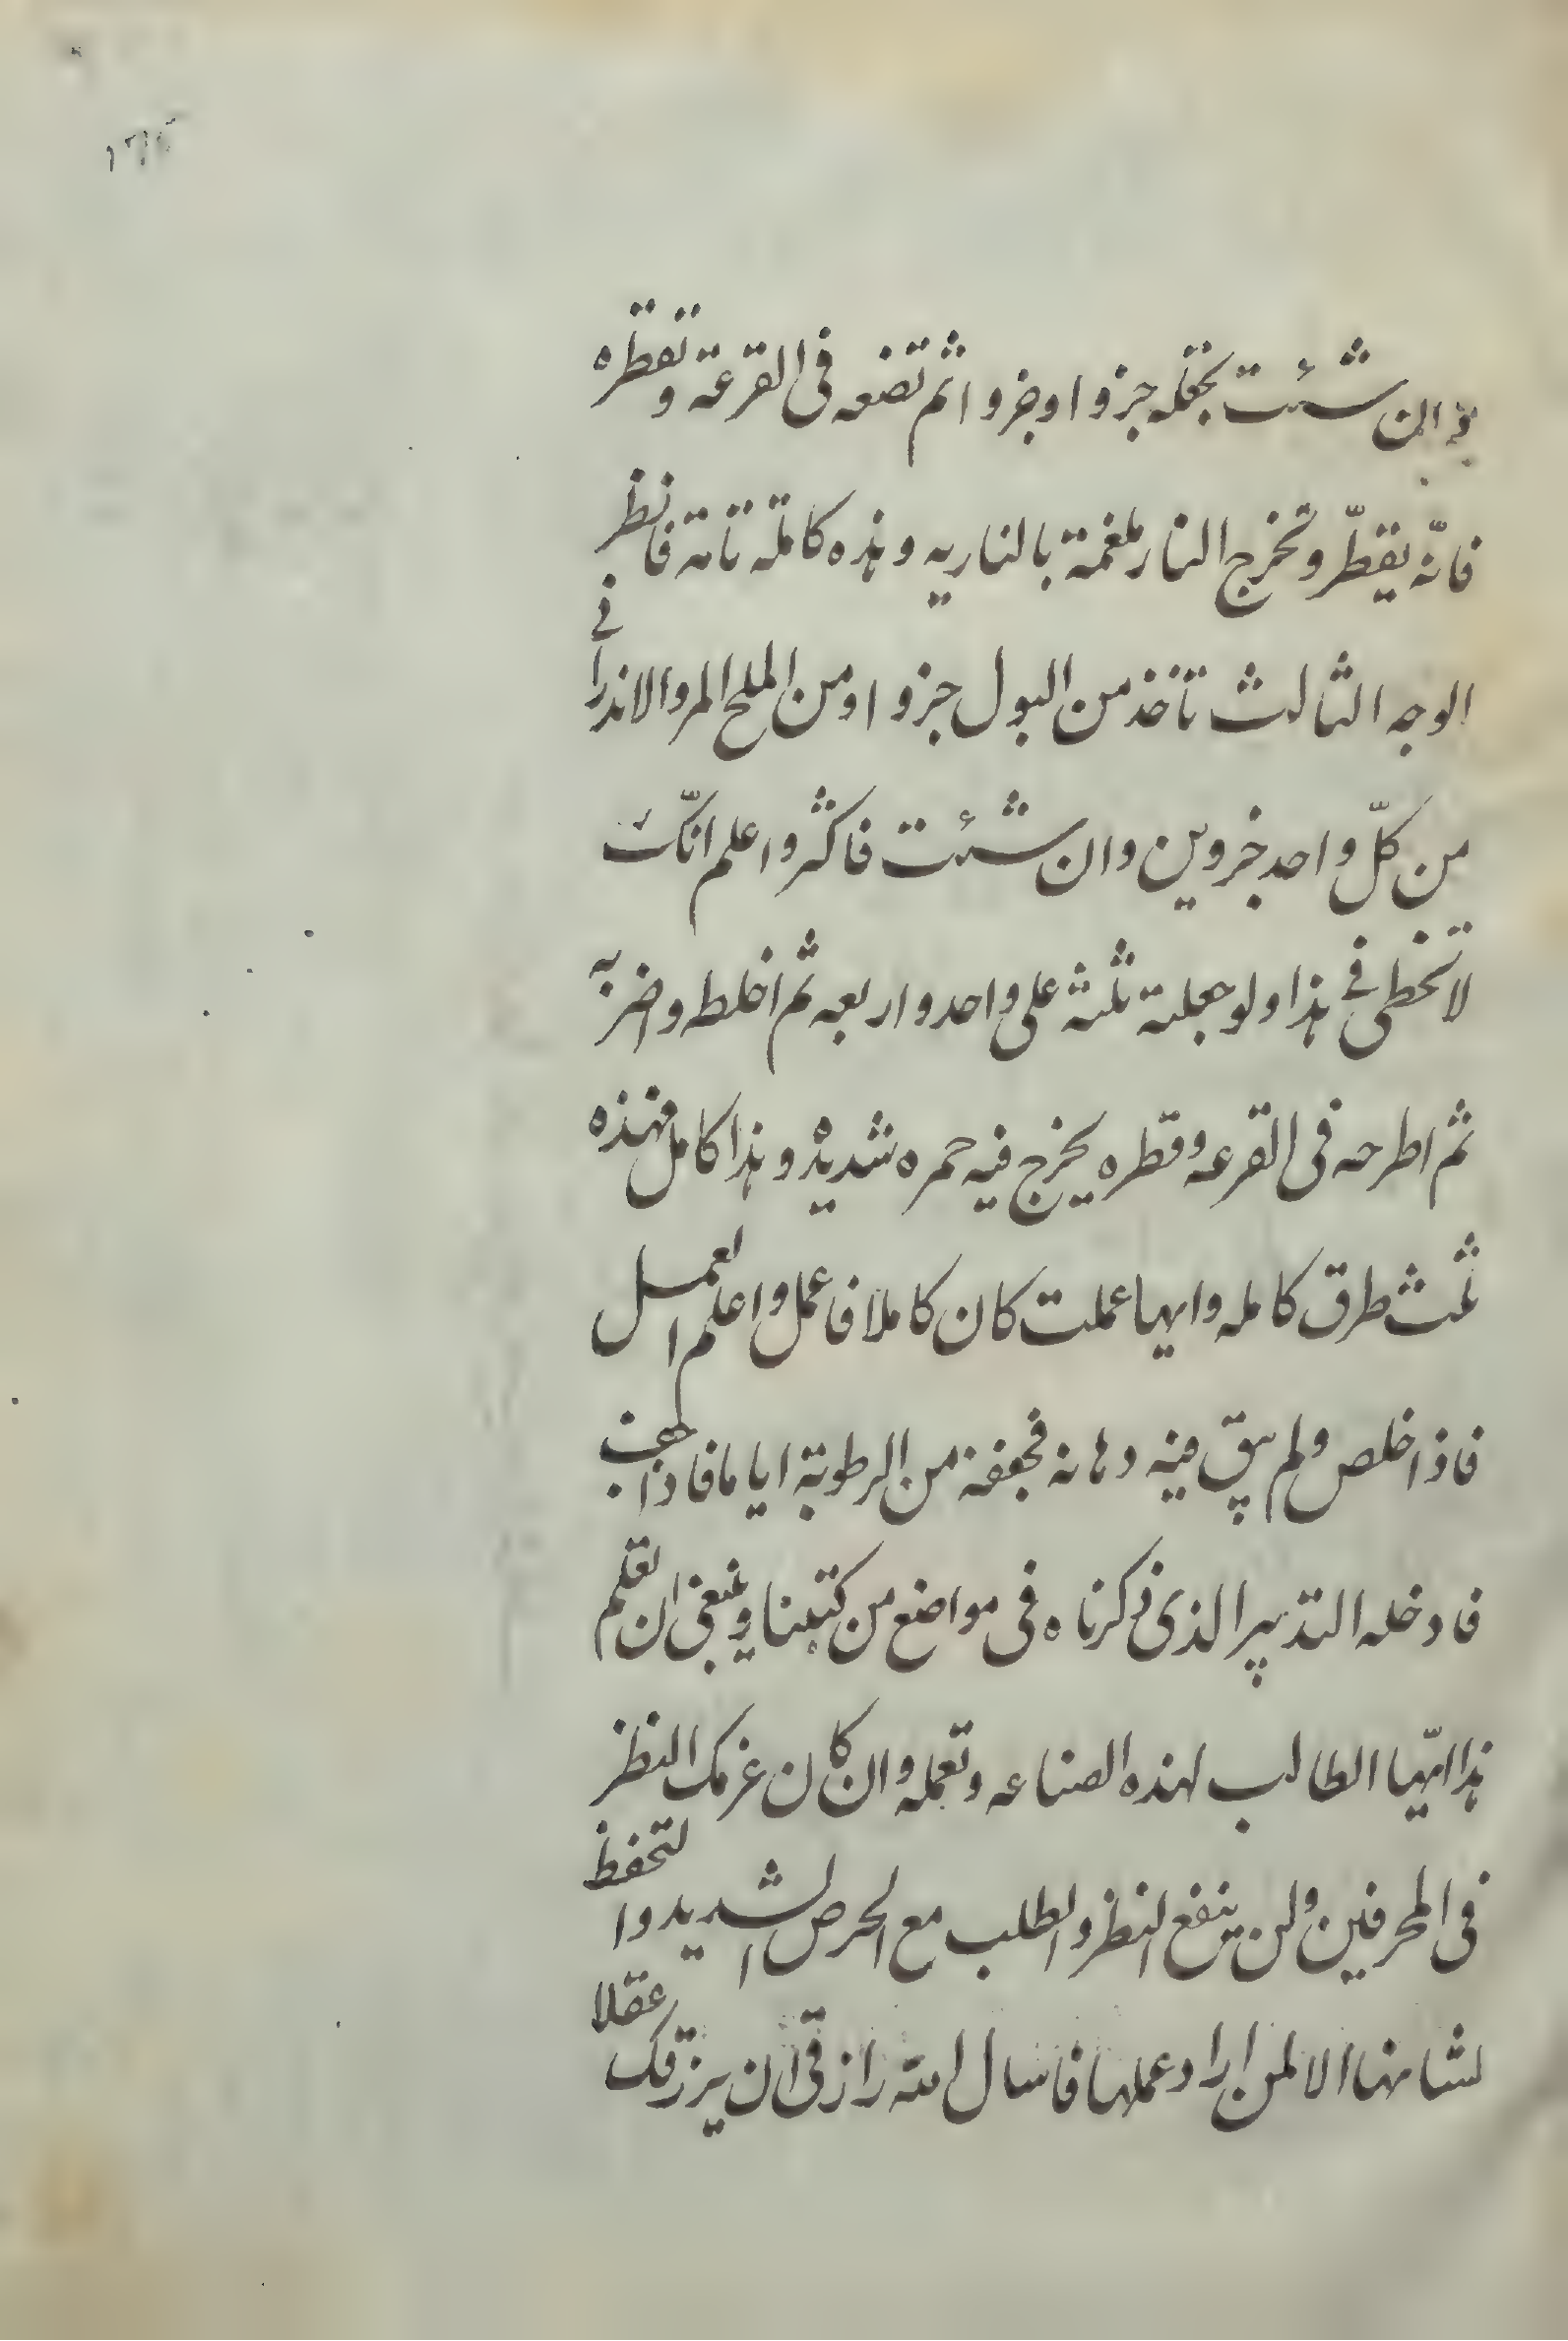 ان شئت تجعله جزوا وجزوا ثم تضعه فى القرعة وتقطره
فانّه يقطّر وتخرج النار ملغمة بالناريه وهذه كاملة تامة فانظر
الوجه الثالث تأخذ من البول جزوا ومن الملح المر والاندرانى
من كلّ واحد جزوين وان شئت فاكثر واعلم انّك
لا تخطى فى هذا ولو جعلته ثلثه على واحد واربعه ثم اخلط واضربه
ثم اطرحه فى القرعه وقطره يخرج فيه حمره شديده وهذا كامل فهذه
ثلث طرق كامله وايها عملت كان كاملا فاعمل واعلم العمل
فاذا خلص ولم يبق فيه دهانه فجففه من الرطوبة اياما فاذا جف
فادخله التدبير الذى ذكرناه فى مواضع من كتبنا وينبغى ان تعلم
هذا ايّها الطالب لهذه الصناعه وتعمله وان كان غرمك النظر
فى المحرفين ولن ينفع النظر والطلب مع الحرص الشديد والتحفظ
لشانها الا لمن اراد عملها فاسال الله رازقى ان يرزقك عقلا